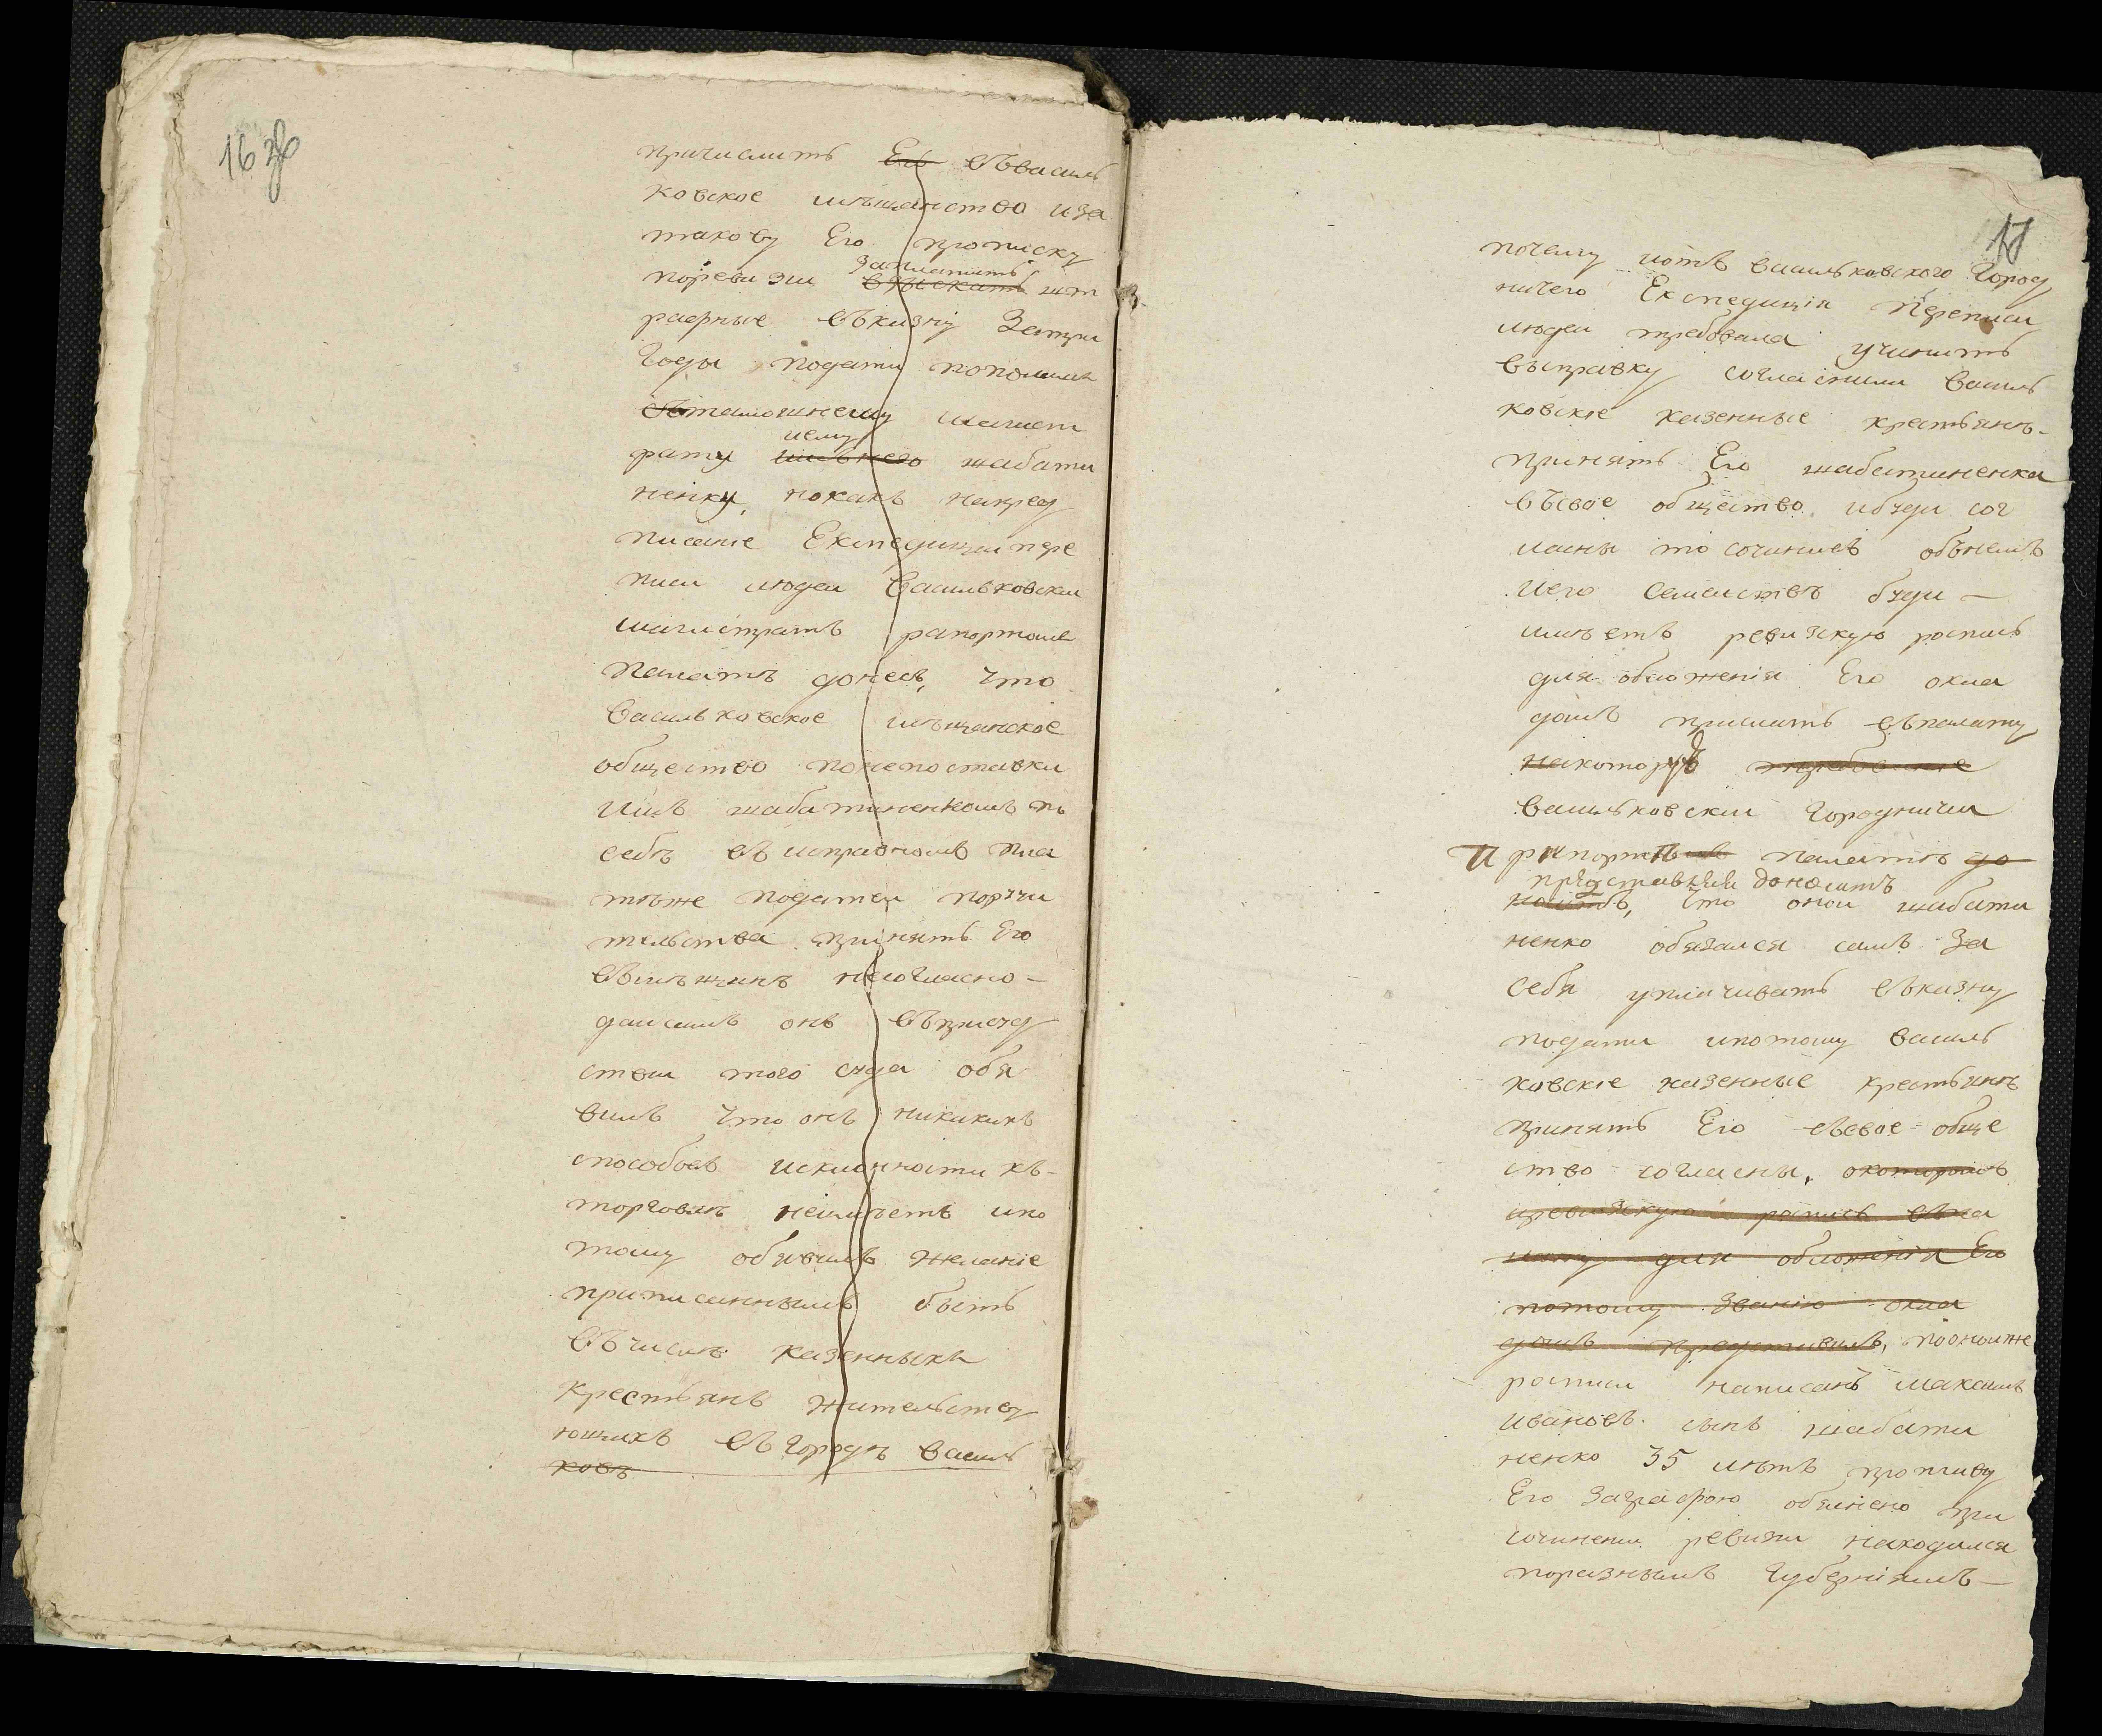 16 зв
причислить Его въ василь
ковское мѣщанство и за
такову Его прописку
по ревизии заплатить взыскать шт
рафные въ казну За три
Годы подати пополам
съ тамошнему магист
рату ему шабати
ненку, но какъ на пред
писание Експедиции пере
писи людей Васильковский
магистратъ рапортомъ
Палатѣ донесъ, что
Васильковское мѣщанское
общество по непоставки
имъ шабатиненкомъ по
себѣ въ исправномъ пла
тѣже податей поручи
тельства принять Его
въ мѣщанѣ несогласно –
да и самъ онъ въ присуд
ствии того суда обя
вилъ что онъ никакихъ
способовъ и склонности къ –
торговлѣ неимѣетъ и по
тому обявилъ желание
приписаннымъ быть
въ число казенныхъ
крестьянъ жительству
ющихъ въ Городѣ Василь
ковѣ
17
почему и отъ васильковского Город
ничего Експедиція Переписи
людей требовала учинить
въправку согласныли Василь
ковскіе казенные крестьянѣ –
принять Его шабатиненка
въ свое общество, и буди сог
ласны то сочинивъ объ немъ
и его Семействѣ буди –
имѣетъ ревизкую роспись
для обложенія Его окла
домъ прислать въ палату
на которую требование
Васильковский Городничий
И рапортъ Палатѣ до
представляя доноситъ
носитъ, что оной шабати
ненко обязался самъ За
себя уплачивать въ казну
подати и потому Василь
ковскіе казенные крестьянѣ
принять Его въ свое обще
ство согласны, о которомъ
и ревизкую роспись въ па
лату для обложенія Его
потому званію окла
домъ представилъ, по оной же
росписи написанъ максимъ
ивановъ сынъ шабати
ненко 35 лѣтъ противу
Его Заграфою обяснено при
сочинении ревизии находился
по разнымъ Губерніямъ –